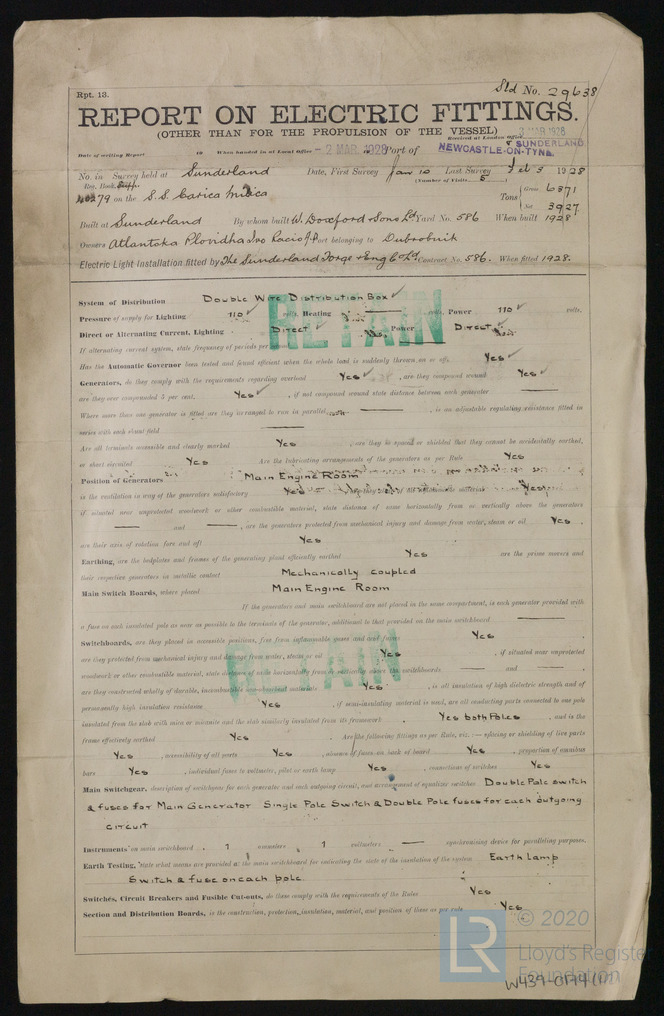 Rpt. 13.
Sld No. 29638
REPORT ON ELECTRIC FITTINGS.
(OTHER THAN FOR THE PROPULSION OF THE VESSEL)
Received at London Office 3 MAR 1928
Date of writing Report 19 When handed in at Local Office - 2 MAR. 1928 Port of NEWCASTLE-ON-TYNE & SUNDERLAND
No. in Survey held at Sunderland Date, First Survey Jan 10 Last Survey Feb 3 1928
Reg. Book. (Number of Visits 5)
79 on the S.S. Carica Milica Tons Gross 6371
Net 3927
Built at Sunderland By whom built W. Doxford & Sons Ld Yard No. 586 When built 1928
Owners Port belonging to Dubrovnik
Electric Light Installation fitted by The Sunderland Forge & Eng Co Ld Contract No. 586. When fitted 1928.
System of Distribution Double Wire Distribution Box
Pressure of supply for Lighting 110 volts, Heating volts, Power 110 volts.
Direct or Alternating Current, Lighting Direct Power Direct
RETAIN
If alternating current system, state frequency of periods per
Has the Automatic Governor been tested and found efficient when the whole load is suddenly thrown on or off Yes
Generators, do they comply with the requirements regarding overload Yes, are they compound wound Yes
are they over compounded 5 per cent. Yes, if not compound wound state distance between each generator
Where more than one generator is fitted are they arranged to run in parallel, is an adjustable regulating resistance fitted in
series with each shunt field
Are all terminals accessible and clearly marked Yes, are they so spaced or shielded that they cannot be accidentally earthed,
or short circuited Yes Are the lubricating arrangements of the generators as per Rule Yes
Position of Generators Main Engine Room
is the ventilation in way of the generators satisfactory Yes Yes
if situated near unprotected woodwork or other combustible material, state distance of same horizontally from or vertically above the generators
and, are the generators protected from mechanical injury and damage from water, steam or oil Yes
are their axis of rotation fore and aft Yes
Earthing, are the bedplates and frames of the generating plant efficiently earthed Yes are the prime movers and
their respective generators in metallic contact Mechanically coupled
Main Switch Boards, where placed Main Engine Room
If the generators and main switchboard are not placed in the same compartment, is each generator provided with
a fuse on each insulated pole as near as possible to the terminals of the generator, additional to that provided on the main switchboard
Switchboards, are they placed in accessible positions, free from inflammable gases and acid fumes Yes
are they protected from mechanical injury and damage from water, steam or oil Yes, if situated near unprotected
woodwork or other combustible material, state distance of same horizontally from or vertically above the switchboards and
RETAIN
are they constructed wholly of durable, incombustible non-absorbent materials Yes, is all insulation of high dielectric strength and of
permanently high insulation resistance Yes, if semi-insulating material is used, are all conducting parts connected to one pole
insulated from the slab with mica or micanite and the slab similarly insulated from its framework Yes both Poles, and is the
frame effectively earthed Yes Are the following fittings as per Rule, viz.:— spacing or shielding of live parts
Yes, accessibility of all parts Yes, absence of fuses on back of board Yes, proportion of omnibus
bars Yes, individual fuses to voltmeter, pilot or earth lamp Yes, connections of switches Yes
Main Switchgear, description of switchgear for each generator and each outgoing circuit, and arrangement of equalizer switches Double Pole switch
& fuses for Main Generator Single Pole Switch & Double Pole fuses for each outgoing
circuit
Instruments on main switchboard 1 ammeters 1 voltmeters — synchronising device for paralleling purposes.
Earth Testing, state what means are provided at the main switchboard for indicating the state of the insulation of the system Earth lamp
Switch & fuse on each pole
Switches, Circuit Breakers and Fusible Cut-outs, do these comply with the requirements of the Rules Yes
Section and Distribution Boards, is the construction, protection, insulation, material, and position of these as per rule Yes
LR © 2020
Lloyd's Register
Foundation